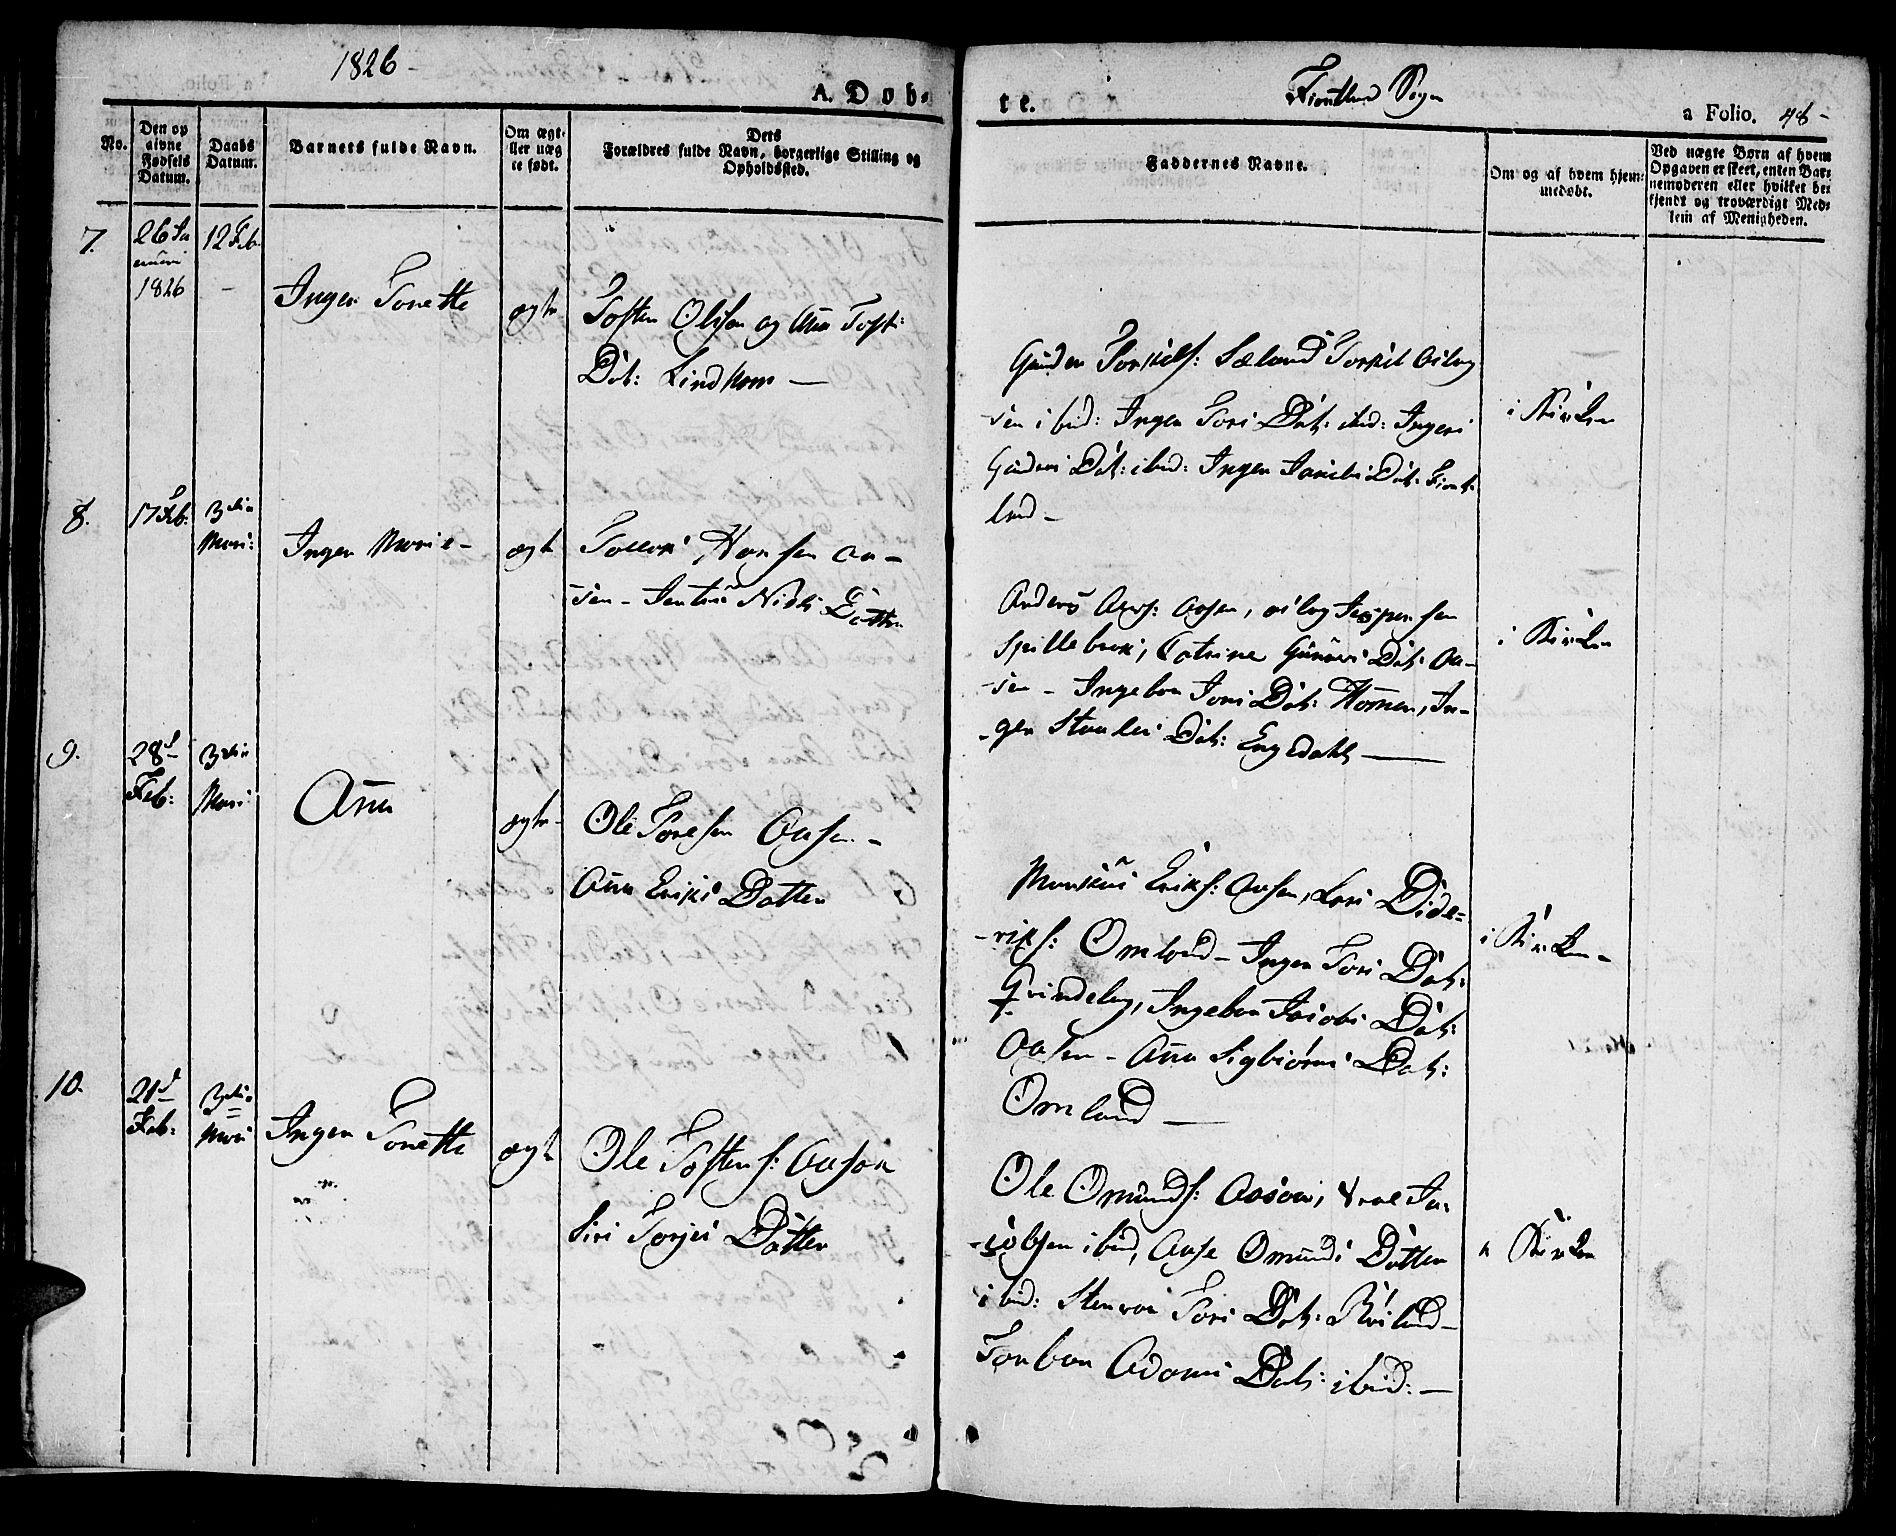 1826
A. Døb-
te.
Fiotland Sogn
a Folio. 48-
No.
Den op
givne
Fødsels
Datum.
Daabs
Datum.
Barnets fulde Navn.
Om ægt-
eller uæg
te født.
Dets
Forældres fulde Navn, borgerlige Stilling og
Opholdssted.
Faddernes Navne.
Om og af hvem hjem-
medøbt.
Ved uægte Børn af hvem
Opgaven er skeet, enten Bar-
nemoderen eller hvilket be-
kjendt og troværdigt Med-
lem af Menigheden.
7.
26 Ja
nuari
1826
12 Feb
Inger Tonette
ægte
Tosten Olsen og Anna Tost:
Dot: Lindhom
Gunder Torkils: Sæland Torkil Aslag
sen ibid: Inger Tori Dot: ibid: Ingeri
Gunders Dot: ibid: Inger Dot: Fiot-
land
i Kirken
8.
17 Feb.
3die
Mars:
Inger Marie
ægt
Hansen Aa-
sen - Niels Dotter
Anders Aasen, Aslag Jespersen
Catrine Gunders Dot: Aa-
sen - Ingebor Dot: Homen, In-
ger Dot: Engedahl
i Kirken
9.
28d
Feb:
3die
Mars
Anna
ægte
Ole Toresen Aasen
Anna Eriks Dotter
Markus Eriks: Aasen, Lars Dide-
riks: Omland - Inger Tori Dot:
Grindeby, Ingebor Jacobs Dot:
Aasen - Anna Sigbiørns Dot:
Omland
i Kirken
10.
21d
Feb:
3die
Mars
Inger Tonette
ægt
Ole Tostens: Aasen
Siri Torjes Dotter
Ole Omunds: Aasen, Ja-
cobsen ibid, Aase Omunds Dotter
ibid: Tori Dot: Kviland
Torbor Adams Dot: ibid:
Kirken